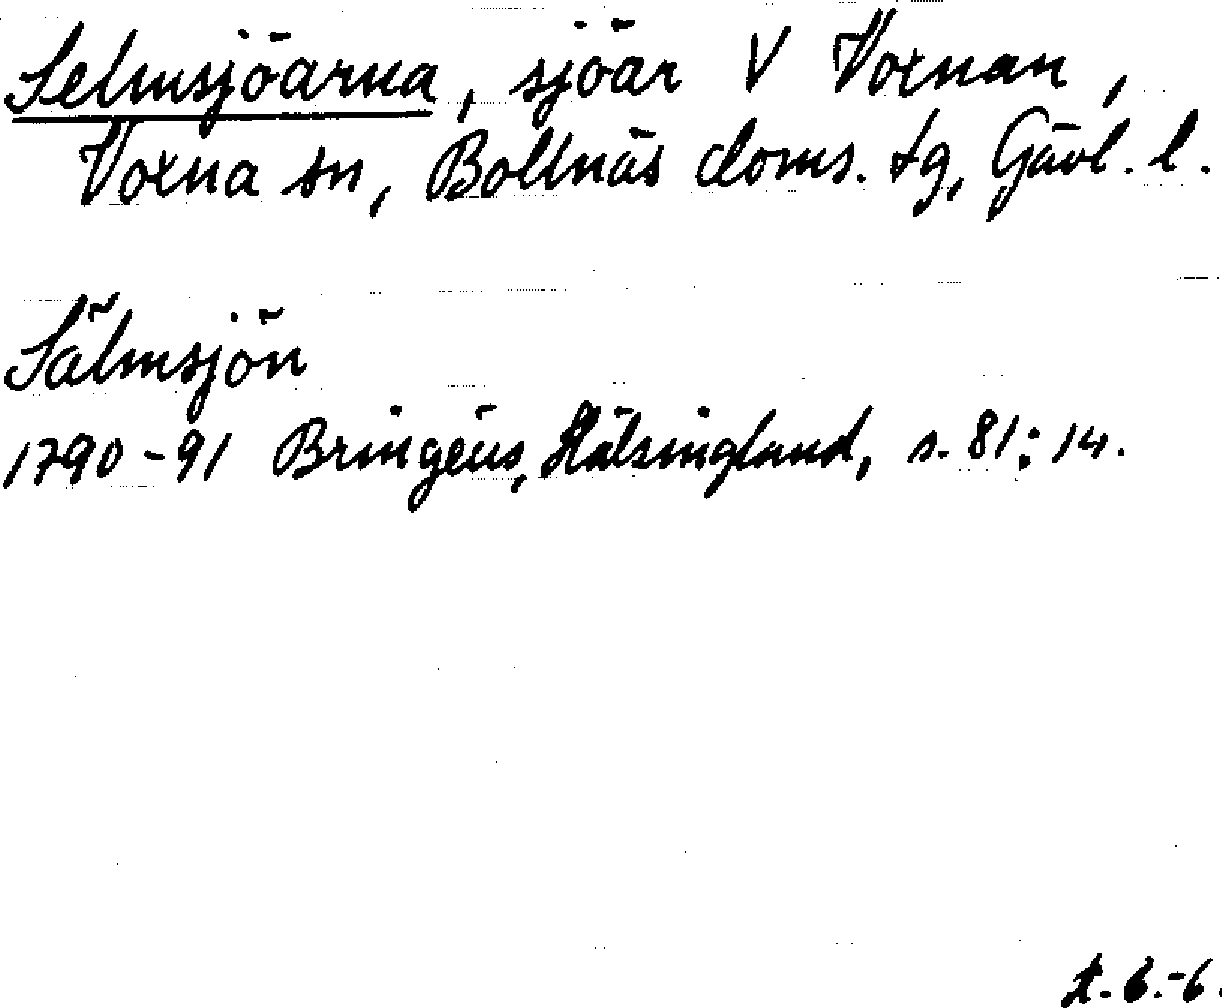 Selmsjöarna, sjöar V Voxnan,
Voxna sn, Bollnäs doms. tg, Gävl. l.
Sälmsjön
1790-91 Bringéus, Hälsingland, s. 81:14.